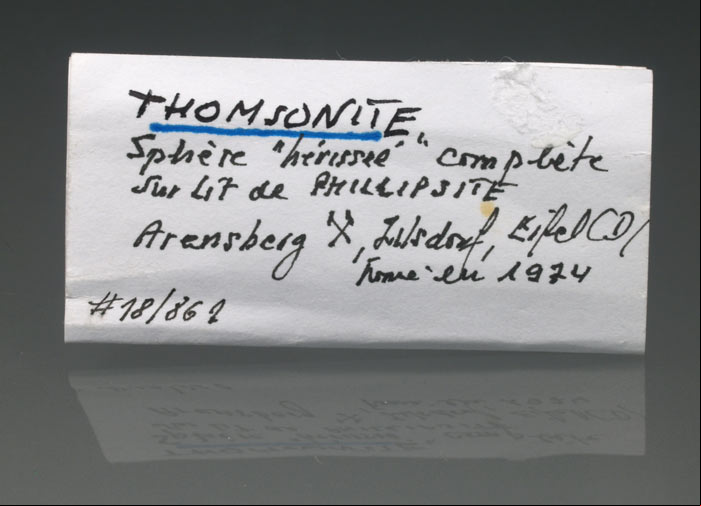 THOMSONITE
Sphère "hérisseé" complète
sur lit de PHILLIPSITE
Arensberg, Zilsdorf, Eifel (D)
en 1974
#18/861